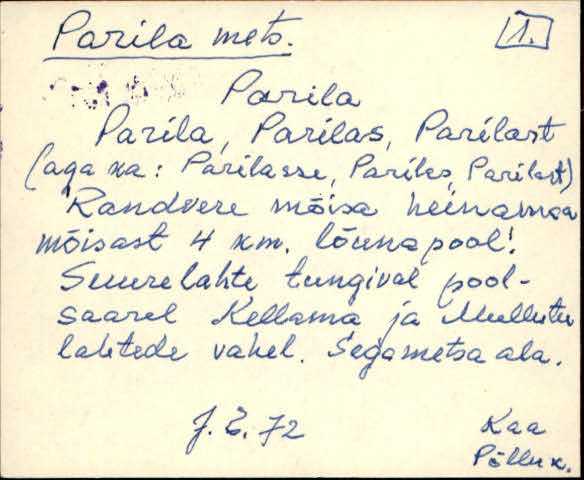 Parila mets. 1.
Parila
Parila, Parilas, Parilast
(aga ka: Parilasse, Parilas, Parilast)
Randvere mõisa heinamaa
mõisast 4 km. lõuna pool.
Suurelahte tungival pool-
saarel Kellama ja Mullutu
lahtede vahel. Segametsa ala.
J. E. 72 Kaa
Põllu k.